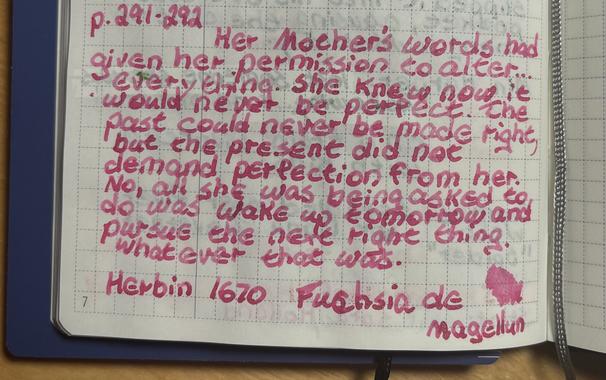 p.291-292
Her Mother's words had
given her permission to alter...
everything. She knew now it
would never be perfect. The
past could never be made right,
but the present did not
demand perfection from her.
No, all she was being asked to
do was wake up tomorrow and
pursue the next right thing.
whatever that was.
Herbin 1670 Fuchsia de
magellan
7